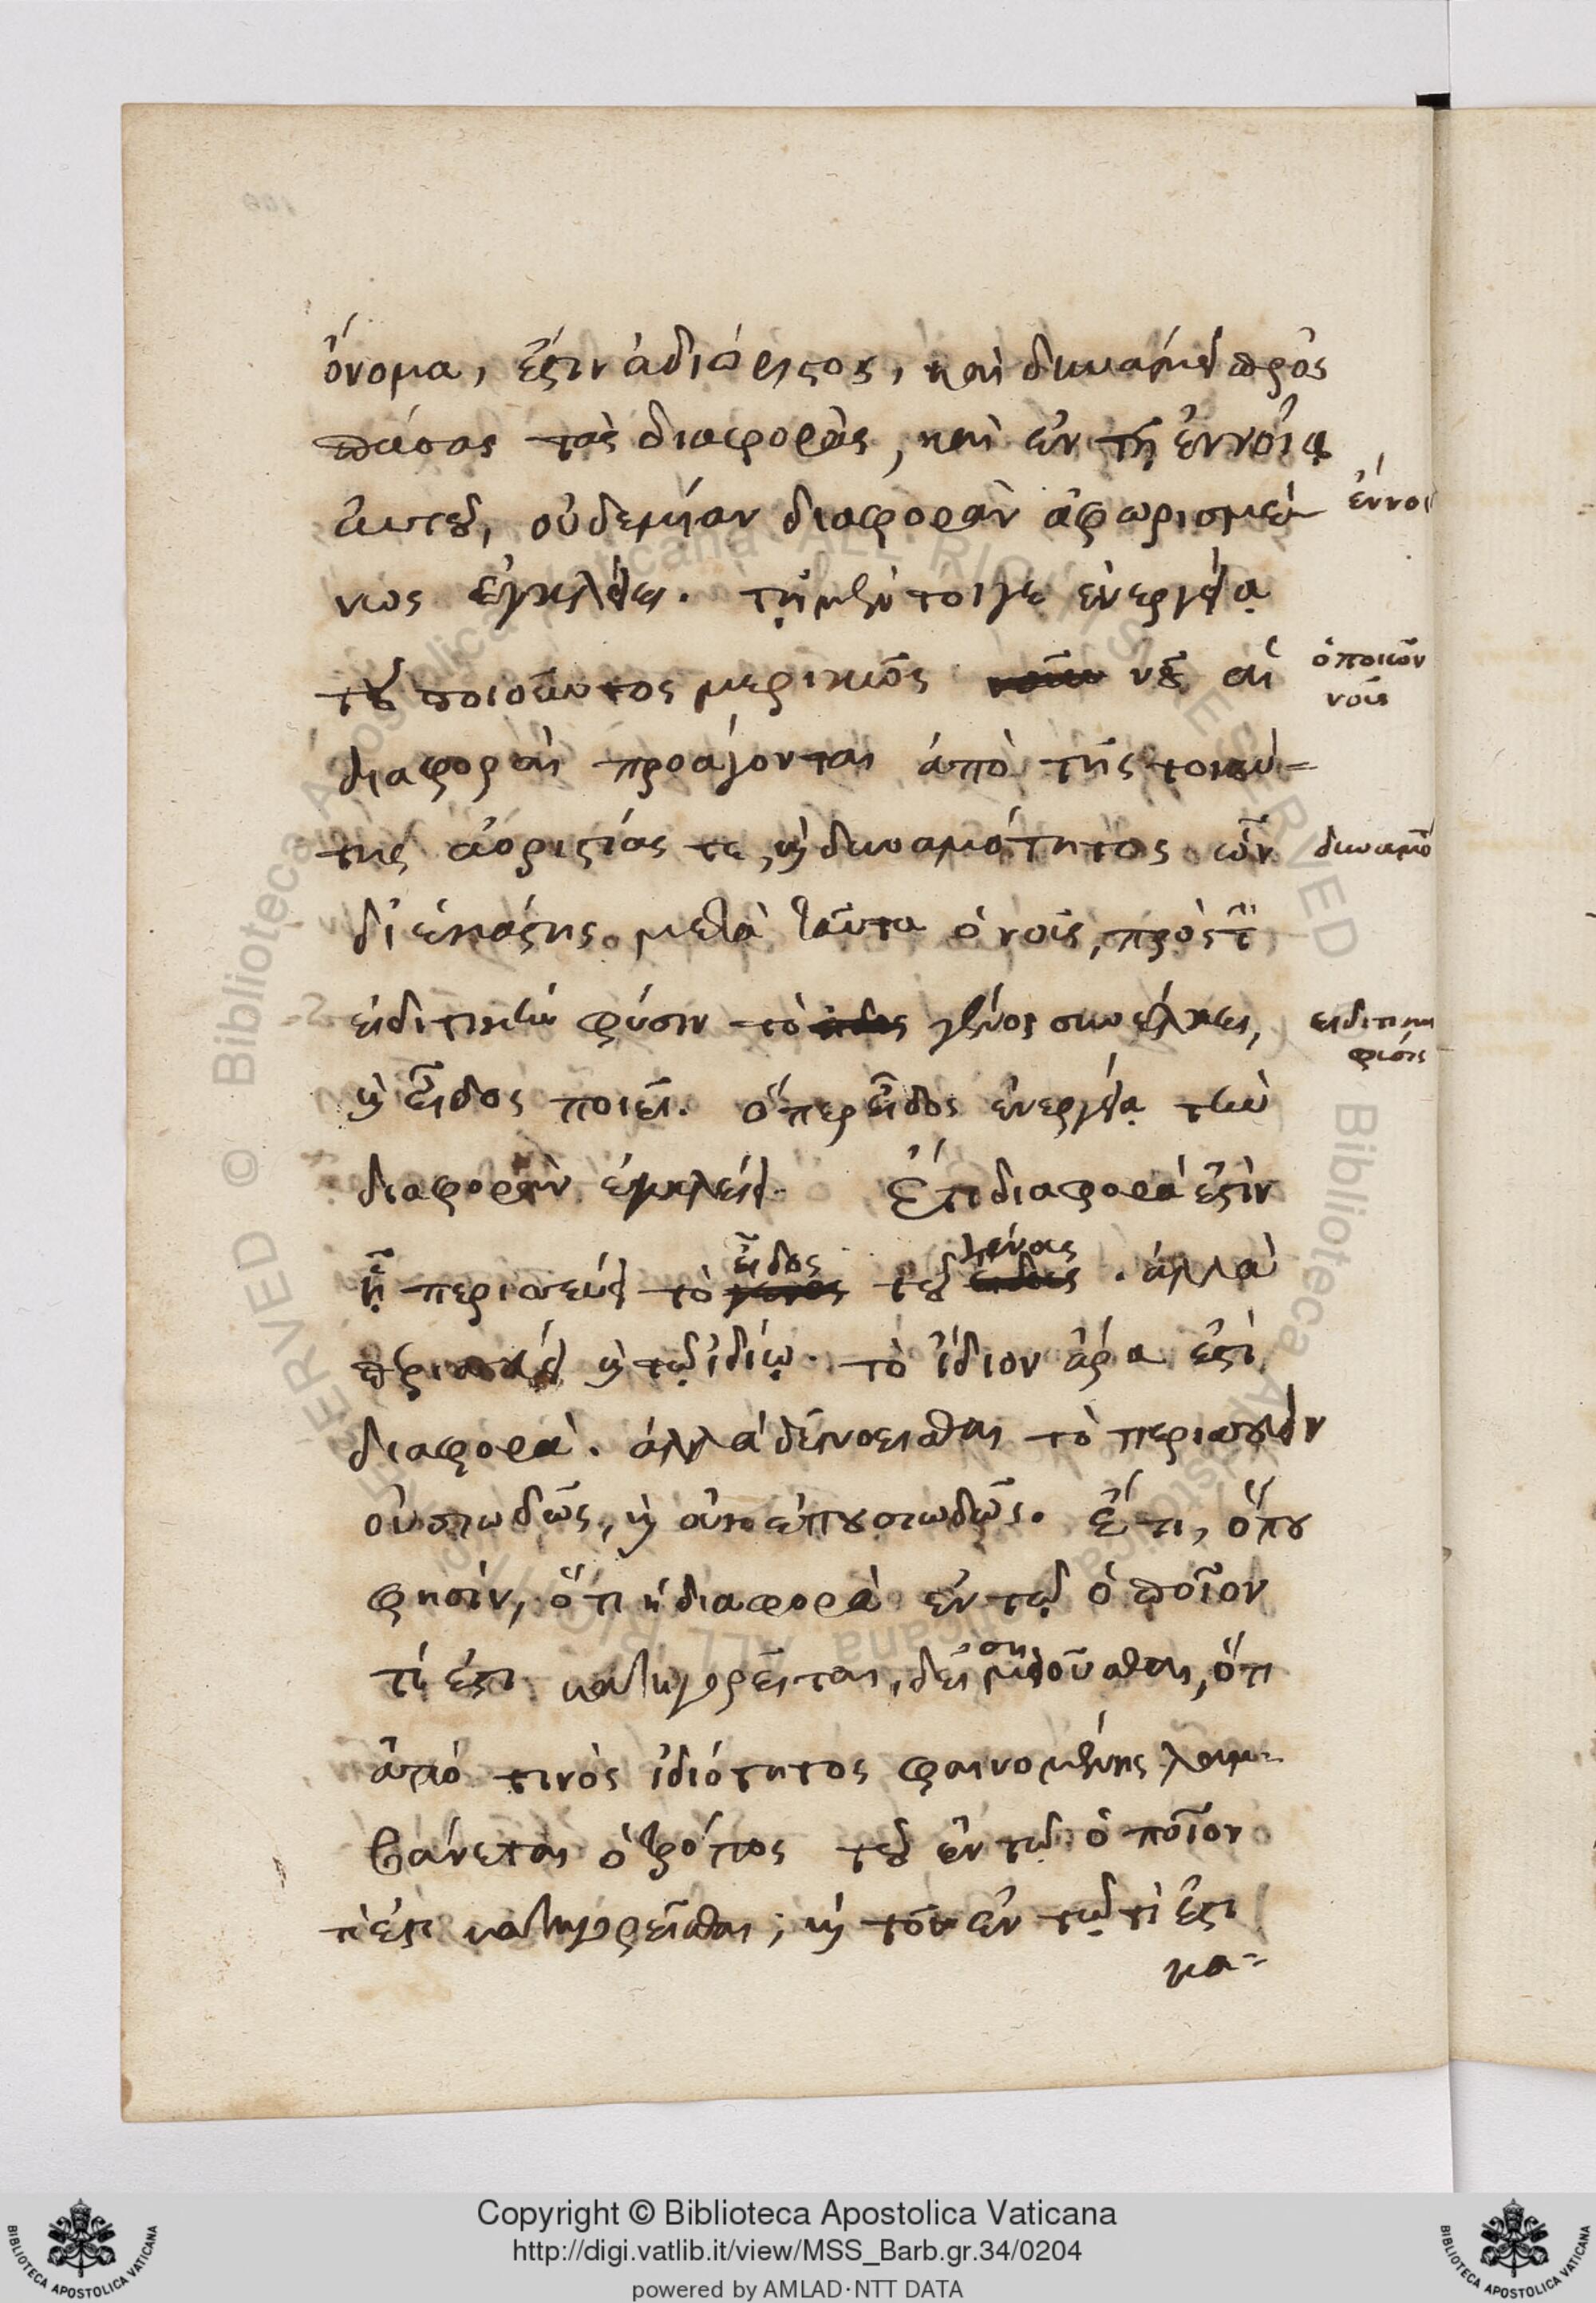 ὄνομα, ἐστιν ἀδιόριστος, καὶ δυνάμει πρὸς
πάσας τὰς διαφοράς, καὶ ἐν τῇ ἐννοίᾳ
αὐτοῦ, οὐδεμίαν διαφορὰν ἀφωρισμέ-
νως ἐγκλείει. τῇ μέν τοιγε ἐνεργείᾳ
τοῦ ποιοῦντος μερικῶς νοῦ αἱ
διαφοραὶ προάγονται ἀπὸ τῆς τοιαύ-
της ἀοριστίας τε, καὶ δυναμότητος ὧν
δι' ἑκάστης μετὰ ταῦτα ὁ νοῦς, πρὸς τ
εἰδιτικὴν φύσιν τὸ γένος συνέλκει,
καὶ εἶδος ποιεῖ. ὅπερ εἶδος ἐνεργείᾳ τὴν
διαφορὰν ἐγκλείει. Ἔτι διαφορά ἐστὶν
ᾗ περισσεύει τὸ εἶδος τοῦ γένους. ἀλλὰ
περισσεύει καὶ τῷ ἰδίῳ. τὸ ἴδιον ἄρα ἐστὶ
διαφορά. ἀλλὰ δεῖ νοεῖσθαι τὸ περισσεύειν
οὐσιωδῶς, καὶ οὐκ ἐπουσιωδῶς. Ἔτι, ὅπου
φησὶν, ὅτι ἡ διαφορὰ ἐν τῷ ὁποῖον
τί ἐστι κατηγορεῖται, δεῖ σημειοῦσθαι, ὅτι
ἀπό τινὸς ἰδιότητος φαινομένης λαμ-
βάνεται ὁ τρόπος τοῦ ἐν τῷ ὁποῖον
τὶ ἐστι κατηγορεῖσθαι, καὶ τοῦ ἐν τῷ τὶ ἐστι
κα-
ἐννοι
ὁ ποιῶν
νοῦς
δυναμό
εἰδιτικη
φύσις
Copyright © Biblioteca Apostolica Vaticana
http://digi.vatlib.it/view/MSS_Barb.gr.34/0204
powered by AMLAD·NTT DATA